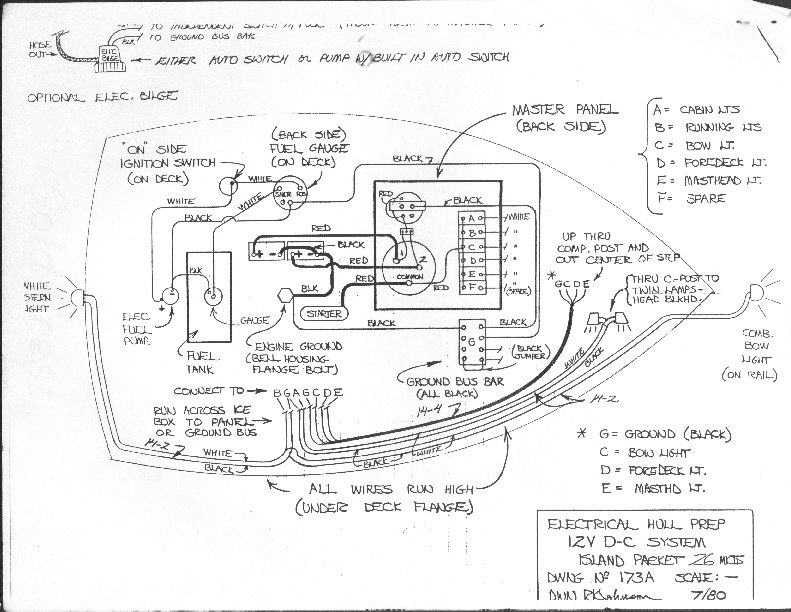 TO GROUND BUS BAR
BLK
HOSE
OUT
ELEC
BILGE
EITHER AUTO SWITCH OR PUMP W/BUILT IN AUTO SWITCH
OPTIONAL ELEC. BILGE
MASTER PANEL
(BACK SIDE)
A = CABIN LTS
B = RUNNING LTS
C = BOW LT.
D = FOREDECK LT.
E = MASTHEAD LT.
F = SPARE
"ON" SIDE
IGNITION SWITCH
(ON DECK)
(BACK SIDE)
FUEL GAUGE
(ON DECK)
BLACK
WHITE
SNDR
POS
G
WHITE
WHITE
BLACK
RED
BLACK
RED
BLACK
RED
RED
1
2
COMMON
RED
A
B
C
D
E
F
WHITE
"
"
"
"
(SPARE)
BLK
BLK
STARTER
+
-
GAUGE
ELEC
FUEL
PUMP
FUEL
TANK
ENGINE GROUND
(BELL HOUSING
FLANGE BOLT)
BLACK
BLACK
G
(BLACK
JUMPER)
GROUND BUS BAR
(ALL BLACK)
UP THRU
COMP. POST AND
OUT CENTER OF STEP
* GCDE
THRU C-POST TO
TWIN LAMPS-
HEAD BLKHD.
WHITE
STERN
LIGHT
COMB.
BOW
LIGHT
(ON RAIL)
WHITE
BLACK
CONNECT TO → BGAGCDE
RUN ACROSS ICE
BOX TO PANEL
OR GROUND BUS
14-4
14-2
14-2
WHITE
BLACK
BLACK
WHITE
ALL WIRES RUN HIGH
(UNDER DECK FLANGE)
* G = GROUND (BLACK)
C = BOW LIGHT
D = FOREDECK LT.
E = MASTHD LT.
ELECTRICAL HULL PREP
12V D-C SYSTEM
ISLAND PACKET 26
DWNG Nº 173A SCALE: —
DWN 7/80